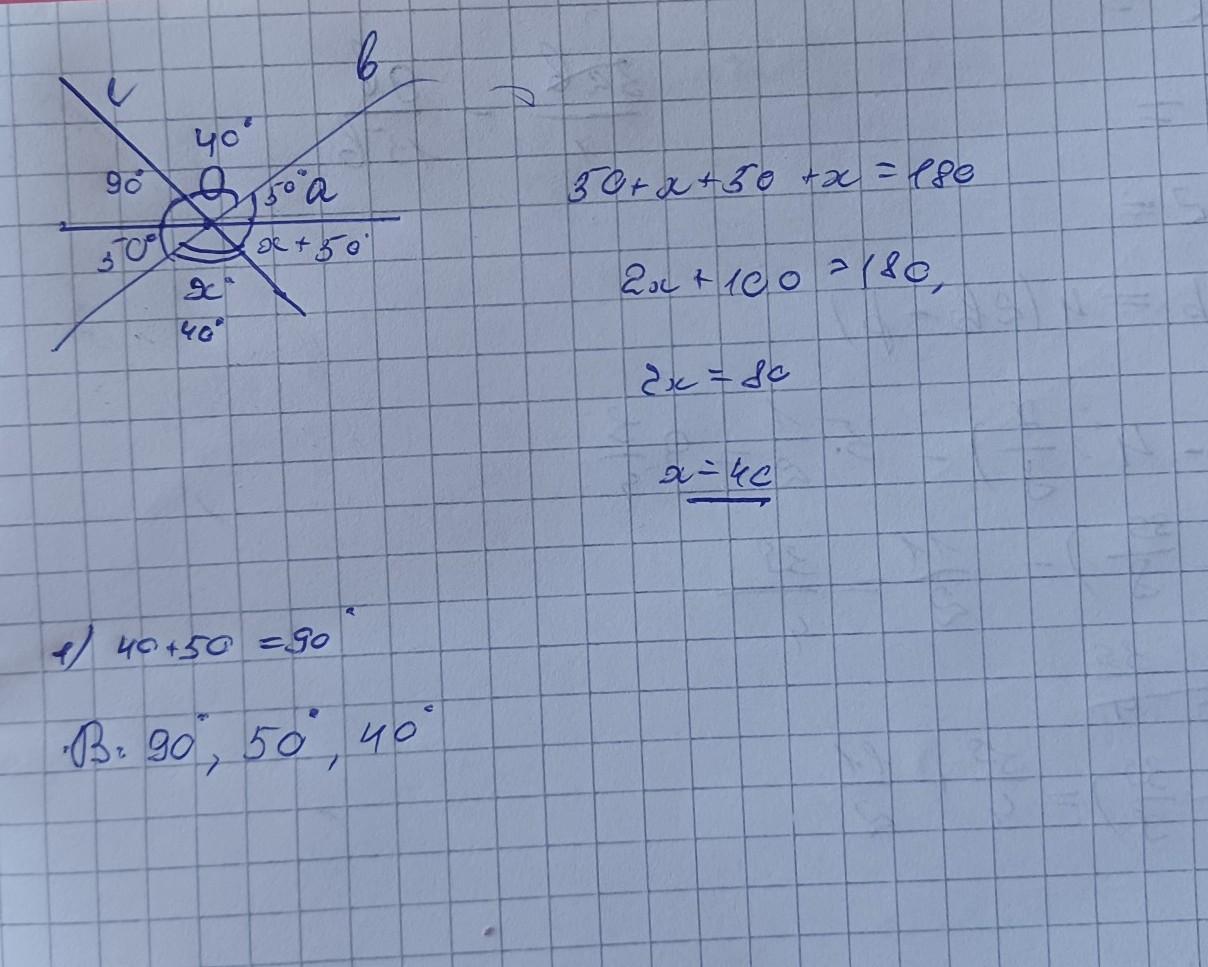 c
b
40°
90°
50° a
50°
x + 50°
x°
40°
50 + x + 50 + x = 180
2x + 100 = 180,
2x = 80
x = 40
1) 40 + 50 = 90°
В: 90°, 50°, 40°